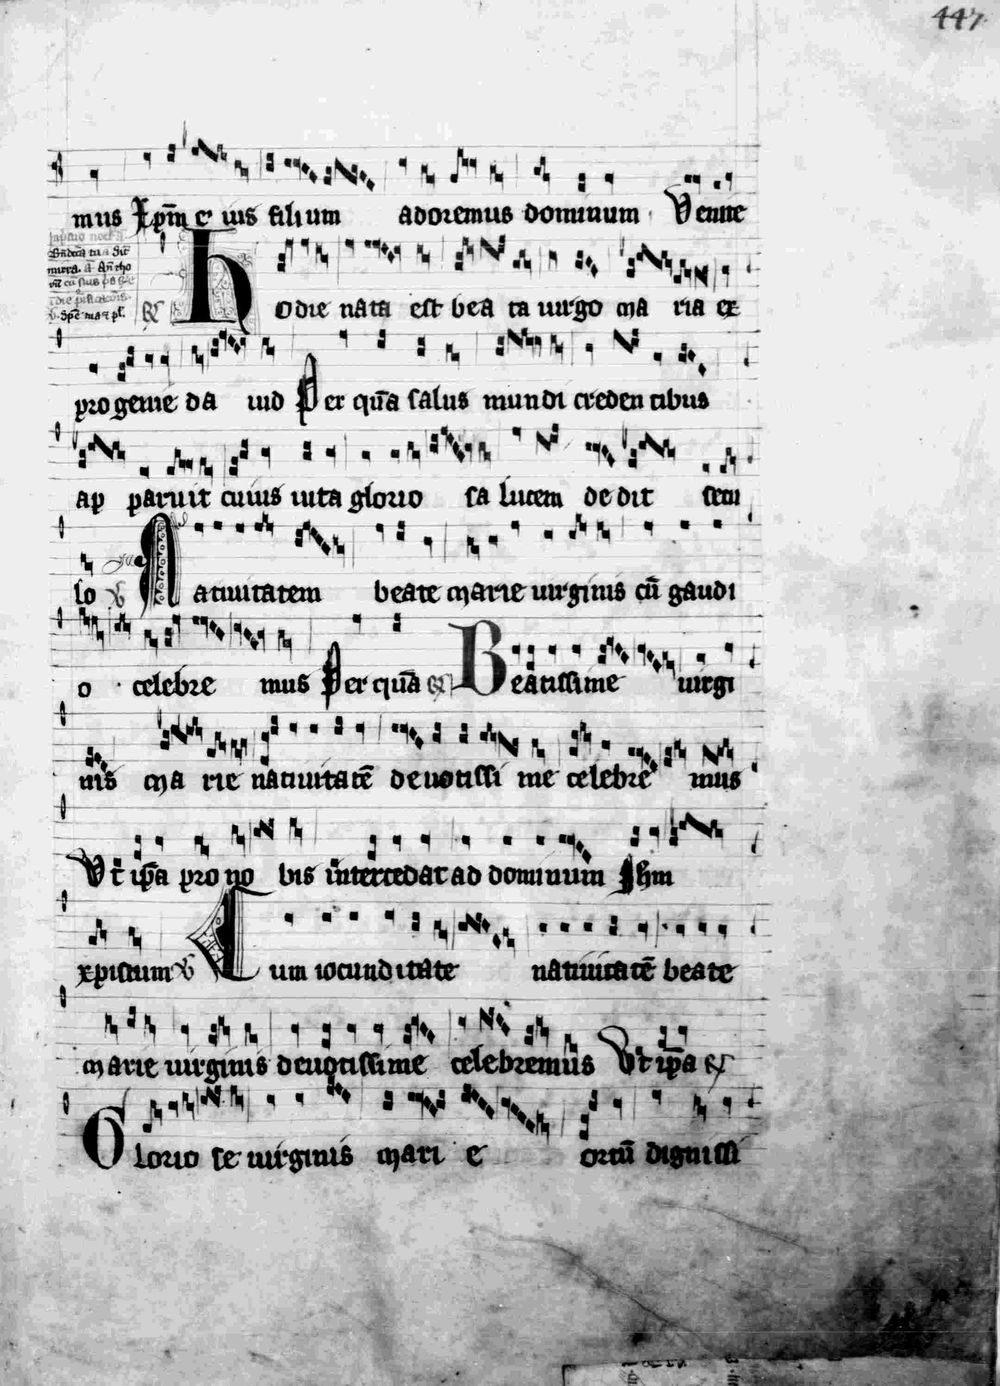 447
mus xp̄m e ius filium adoremus dominum Venite
℟ Hodie nata est bea ta uirgo ma ria ex
progenie da uid Per quā salus mundi creden tibus
ap paruit cuius uita glorio sa lucem de dit secu
lo ℣ Natiuitatem beate marie uirginis cū gaudi
o celebre mus Per quā ℟ Beatissime uirgi
nis ma rie natiuitatē deuotissi me celebre mus
Vt ipa pro no bis intercedat ad dominum Ihm
xpistum ℣ Cum iocunditate natiuitatē beate
marie uirginis deuotissime celebremus Vt ipa ℟
Glorio se uirginis mari e ortū dignissi